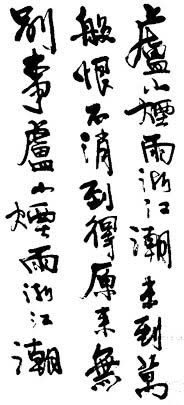 廬山煙雨浙江潮未到萬
般恨不消到得原來無
別事廬山煙雨浙江潮